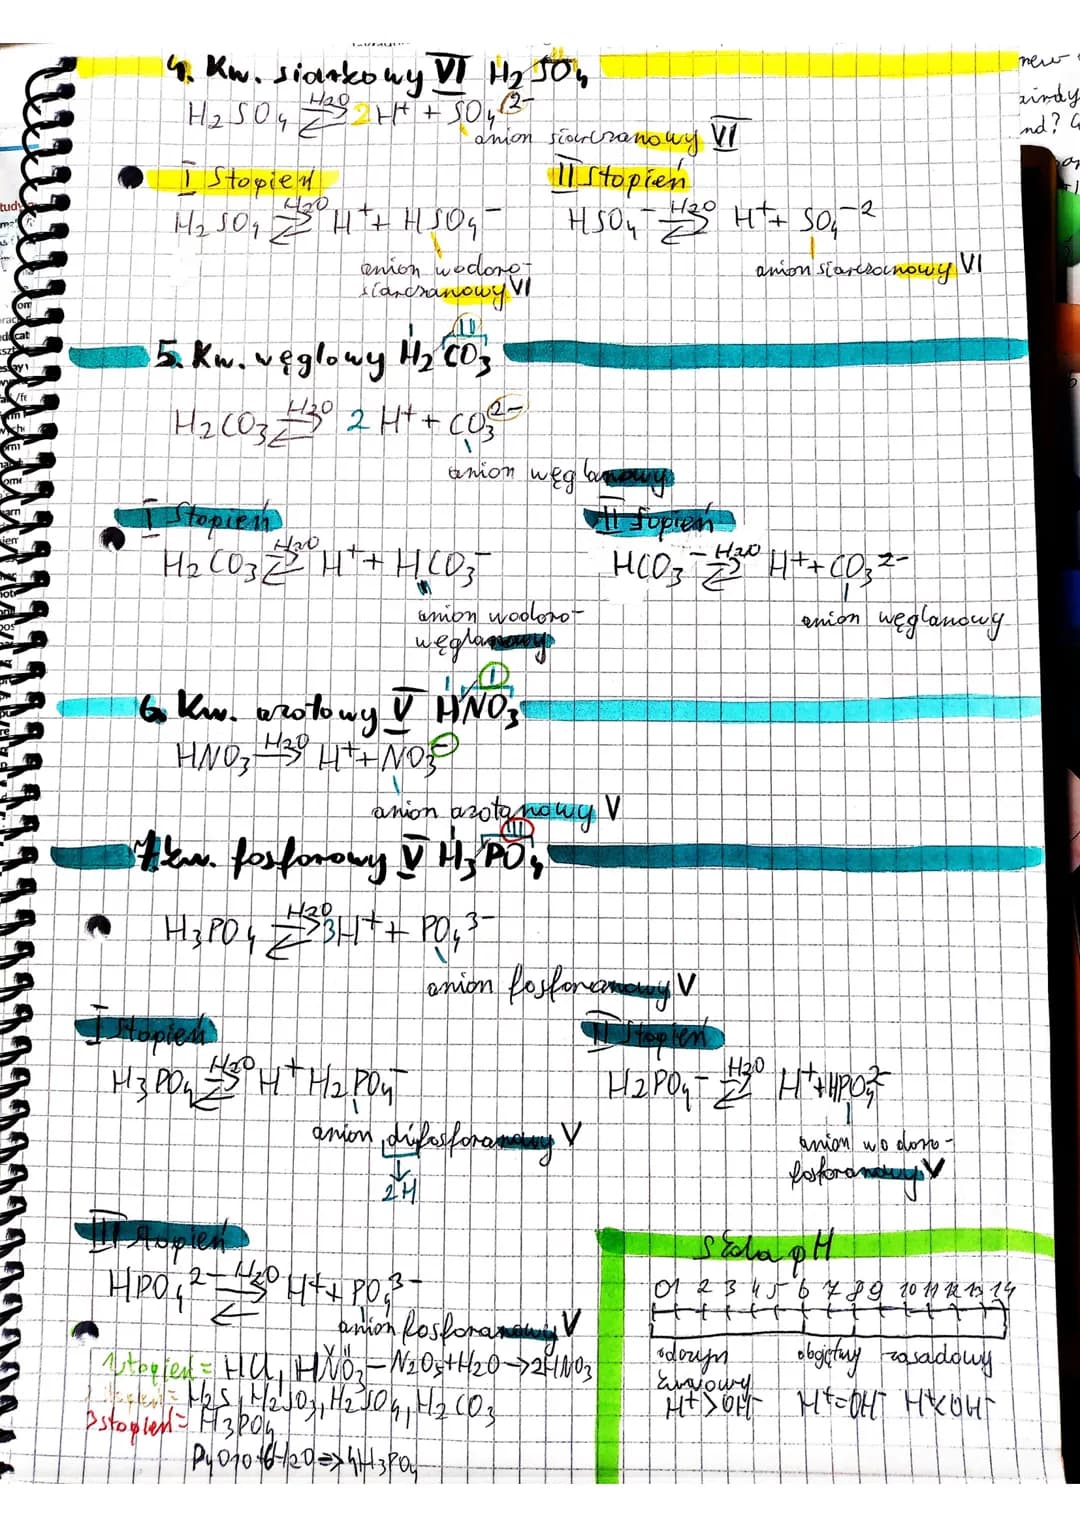 4. Kw. siarkowy VI H₂SO₄
H₂SO₄ ⇄ H₂O 2H⁺ + SO₄²⁻
anion siarczanowy VI
I Stopień
H₂SO₄ ⇄ H₂O H⁺ + HSO₄⁻
anion wodoro-
siarczanowy VI
II Stopień
HSO₄⁻ ⇄ H₂O H⁺ + SO₄⁻²
anion siarczanowy VI
II
5. Kw. węglowy H₂CO₃
H₂CO₃ ⇄ H₂O 2H⁺ + CO₃²⁻
anion węglanowy
I Stopień
H₂CO₃ ⇄ H₂O H⁺ + HCO₃⁻
anion wodoro-
węglanowy
II Sopień
HCO₃⁻ ⇄ H₂O H⁺ + CO₃²⁻
anion węglanowy
I
6. Kw. azotowy V HNO₃
HNO₃ → H₂O H⁺ + NO₃⁻
anion azotanowy V
III
7. kw. fosforowy V H₃PO₄
H₃PO₄ ⇄ H₂O 3H⁺ + PO₄³⁻
anion fosforanowy V
I Stopień
H₃PO₄ ⇄ H₂O H⁺ H₂PO₄⁻
anion difosforanowy V
↓
2H
II Stopień
H₂PO₄⁻ ⇄ H₂O H⁺ + HPO₄²⁻
anion wodoro-
fosforanowy V
III Stopień
HPO₄²⁻ ⇄ H₂O H⁺ + PO₄³⁻
anion fosforanowy V
1 stopień = HCl, HNO₃ – N₂O₅ + H₂O → 2HNO₃
H₂S, H₂SO₃, H₂SO₄, H₂CO₃
3 stopień = H₃PO₄
P₄O₁₀ + 6H₂O => 4H₃PO₄
Skala pH
0 1 2 3 4 5 6 7 8 9 10 11 12 13 14
odczyn obojętny zasadowy
kwasowy
H⁺>OH⁻ H⁺=OH⁻ H⁺<OH⁻